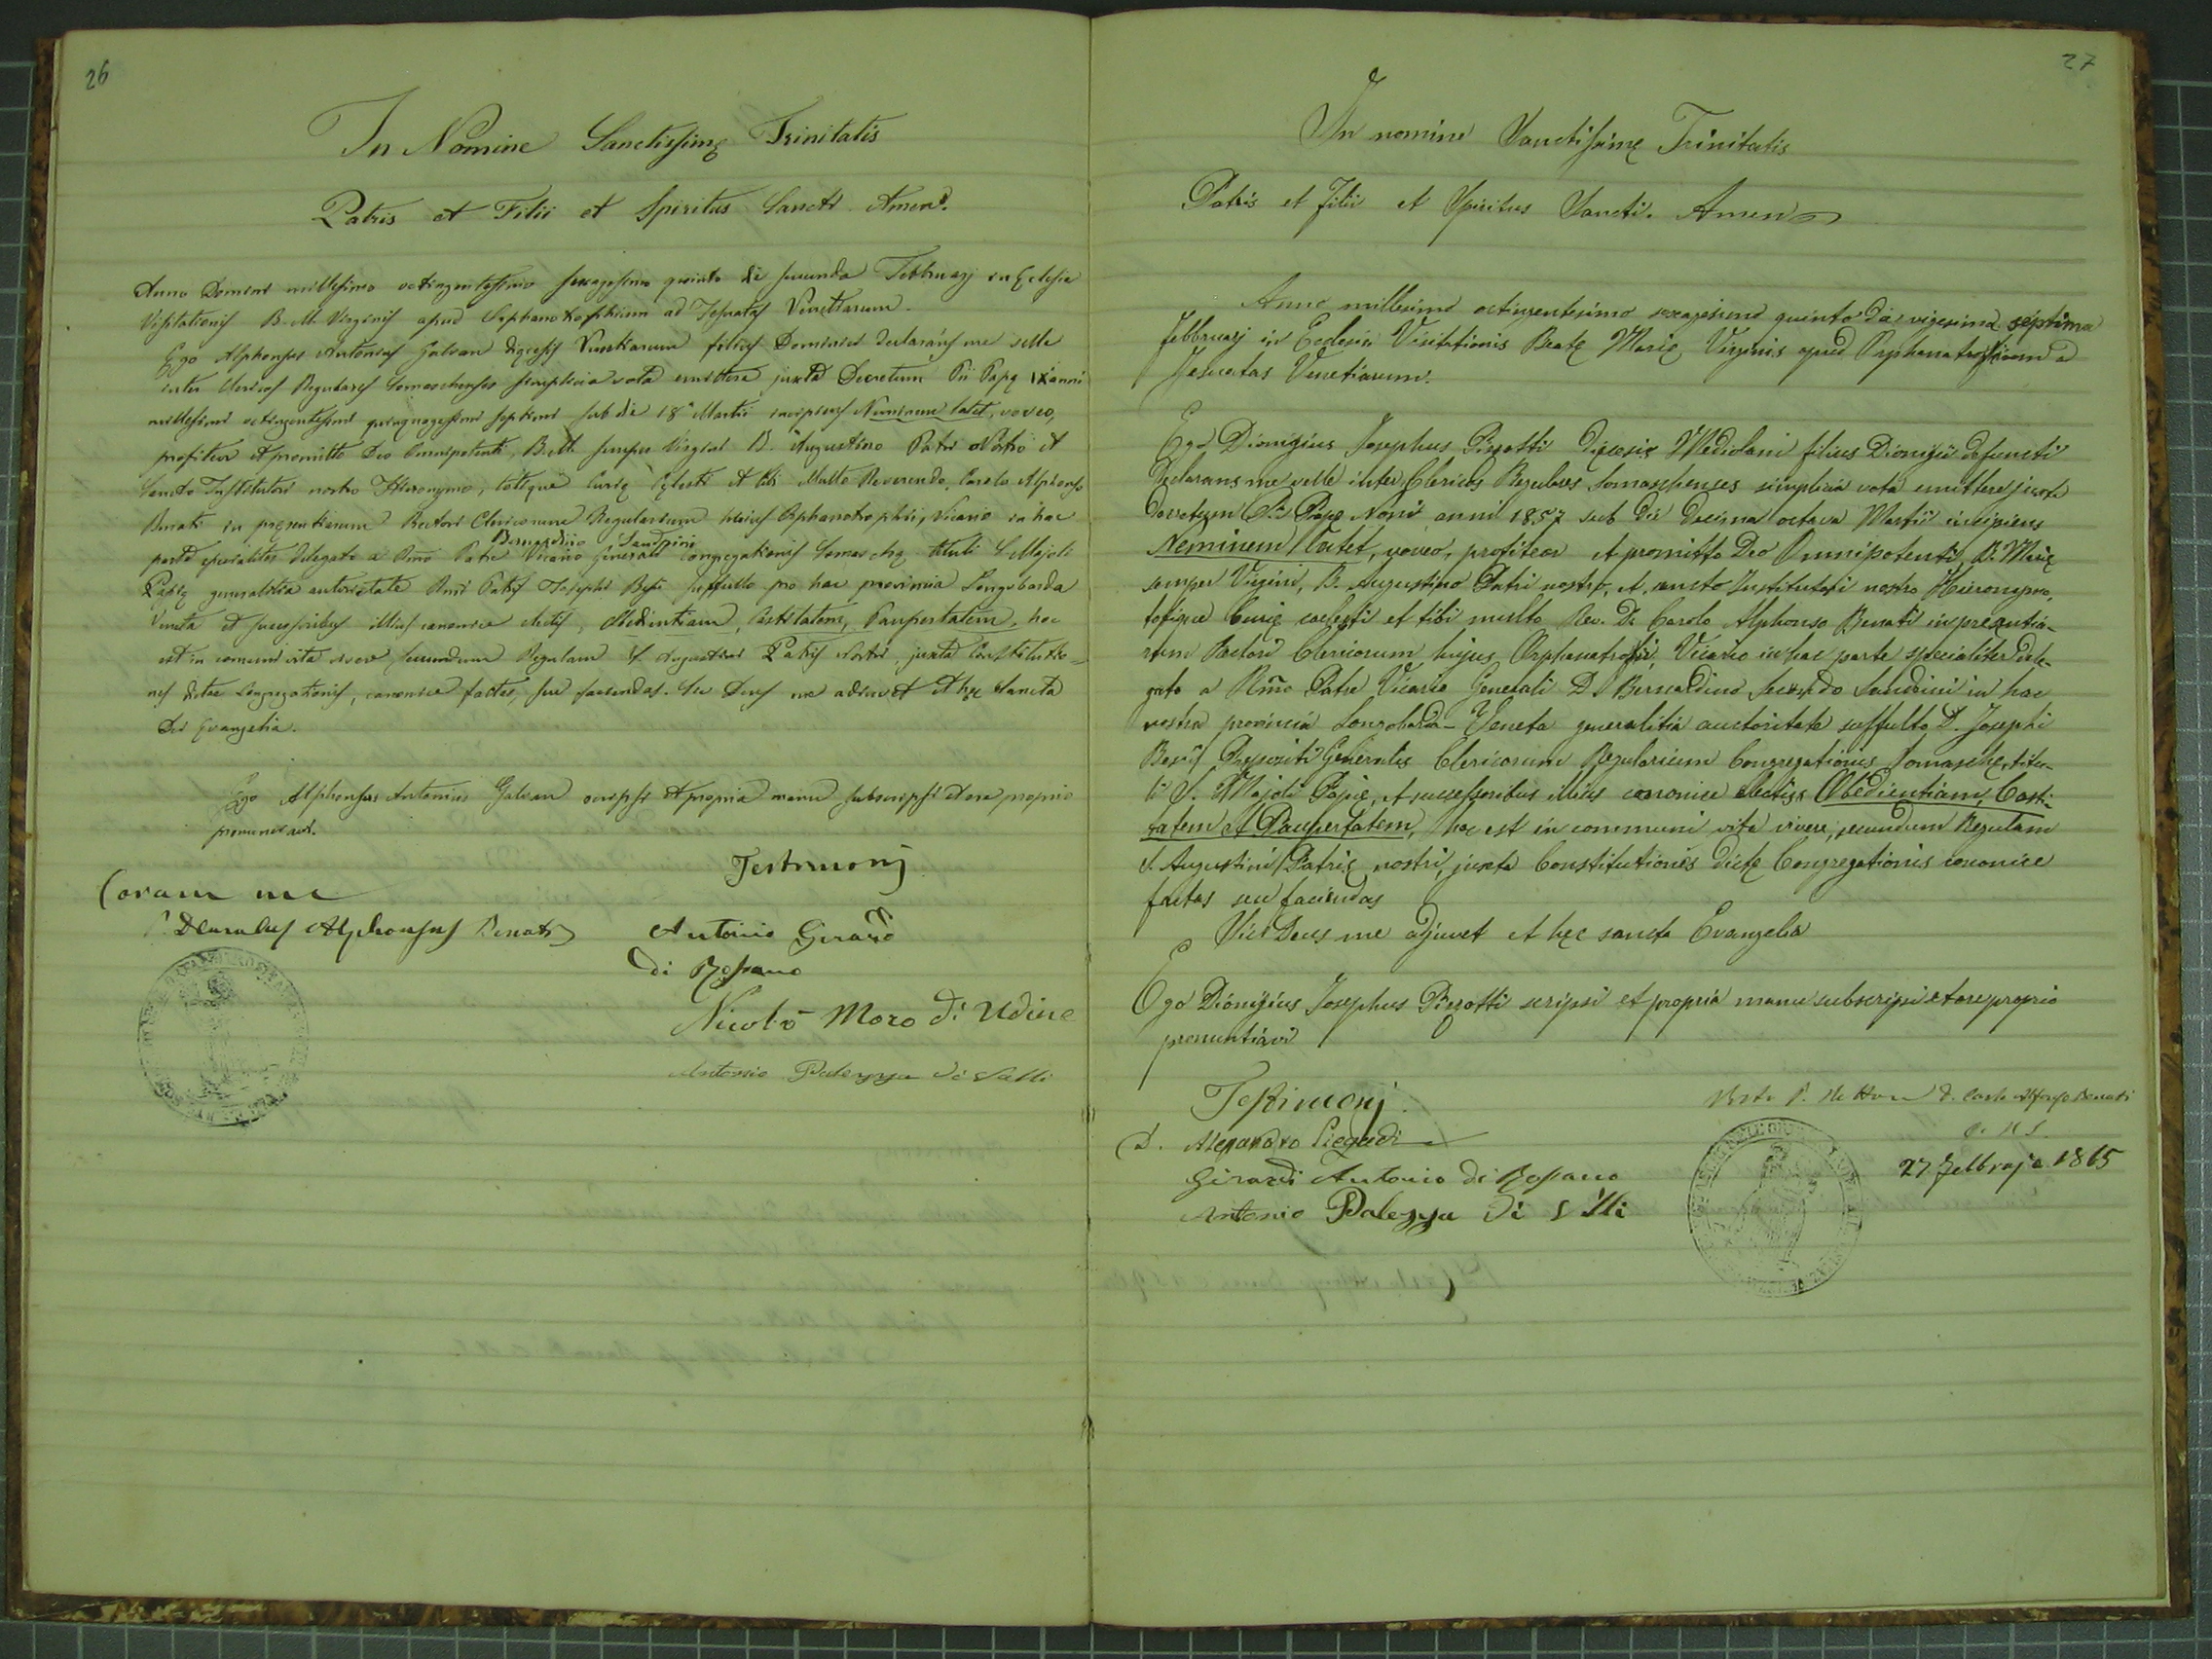 26
In Nomine Sanctissimę Trinitatis
Patris et Filii et Spiritus Sancti Amen.
Anno Domini millesimo octingentesimo sexagesimo quinto die secunda Februarj in Eclesia
Visitationis B. M. Virginis apud Orphanotrophium ad Jesuatas Venetiarum.
Ego Alphonsus Antonius Galvan dięcesis Venetiarum filius Dominici declarans me velle
inter Clericos Regulares Somaschenses simplicia vota emittere juxta Decretum Pii Papę IX anni
millesimi octingentesimi quinquagesimi septimi sub die 18ª Martii incipiens Neminem latet, voveo,
profiteor et promitto Deo Omnipotenti, B. M. semper Virgini B. Augustino Patri Nostro et
Sancto Institutori nostro Hieronymo, totique Curię Cęlesti et tibi Multo Reverendo Carolo Alphonso
Benati in pręsentiarum Rectori Clericorum Regularium hujus Orphanotrophii, Vicario in hac
parte specialiter delegato a Rmo Patre Vicario Generali Congregationis Somaschę tituli S. Majoli
Bernardino Sandrini
Papię generalitia autoritate Rmi Patris Josephi Besio suffulto pro hac provincia Longobarda
Veneta et successoribus illius canonice electis, Obedientiam, Castitatem, Paupertatem, hoc
est in comuni vita vivere, secundum Regulam S. Augustini Patris Nostri, juxta Constitutio=
nes dictae Congregationis, canonice factas, seu faciendas. Sic Deus me adjuvet et hęc Sancta
Dei Evangelia.
Ego Alphonsus Antonius Galvan scripsi et propria manu subscripsi et ore proprio
pronunciavi.
Testimonj
Coram me
D Carolus Alphonsus Benati
Antonio Girardi
di Rossano
Nicolò Moro di Udine
Antonio Palezza di Valli
27
In nomine Sanctissimę Trinitatis
Patris et Filii et Spiritus Sancti. Amen
Anno millesimo octingentesimo sexagesimo quinto die vigesima septima
Febbruarj in Ecclesia Visitationis Beatę Marię Virginis apud Orphanatrofium a
Jesuatas Venetiarum.
Ego Dionigius Josephus Pizzotti Dięcesis Mediolani filius Dionigii defuncti
Declarans me velle inter Clericos Regulares Somaschenses simplicia vota emittere juxta
Decretum Pii Papę Noni anni 1857 sub die Decima octava Martii incipiens
Neminem Latet, voveo, profiteor et promitto Deo Omnipotenti, B. Marię
semper Virgini, B. Augustino Patri nostro, et sancto Institutori nostro Hieronymo,
totique Curię coelesti et tibi multo Rev. D. Carolo Alphonso Benati in prezentia-
rum Rectori Clericorum hujus Orphanatrofii, Vicario in hac parte specialiter dele-
gato a Rmo Patre Vicario Generali D. Bernardino Secondo Sandrini in hac
nostra provincia Longobarda-Veneta generalitia auctoritate suffulto D. Josephi
Besij Prepositi Generalis Clericorum Regularium Congregationis Somaschę, titu-
li S. Majoli Papię, et successoribus illius canonice electis Obedientiam, Casti-
tatem et Paupertatem, hoc est in communi vita vivere, secundum Regulam
S. Augustini Patris nostri, juxta Constitutiones dictę Congregationis canonice
factas seu faciendas
Sic Deus me adjuvet et hęc sancta Evangelia
Ego Dionigius Josephus Pizzotti scripsi et propria manu subscripsi et ore proprio
pronuntiavi
Testimonj
D. Alessandro Piegadi
Girardi Antonio di Rossano
Antonio Palezza di Valli
Visto P. D. Carlo Alfonso Benati
27 Febbrajo 1865